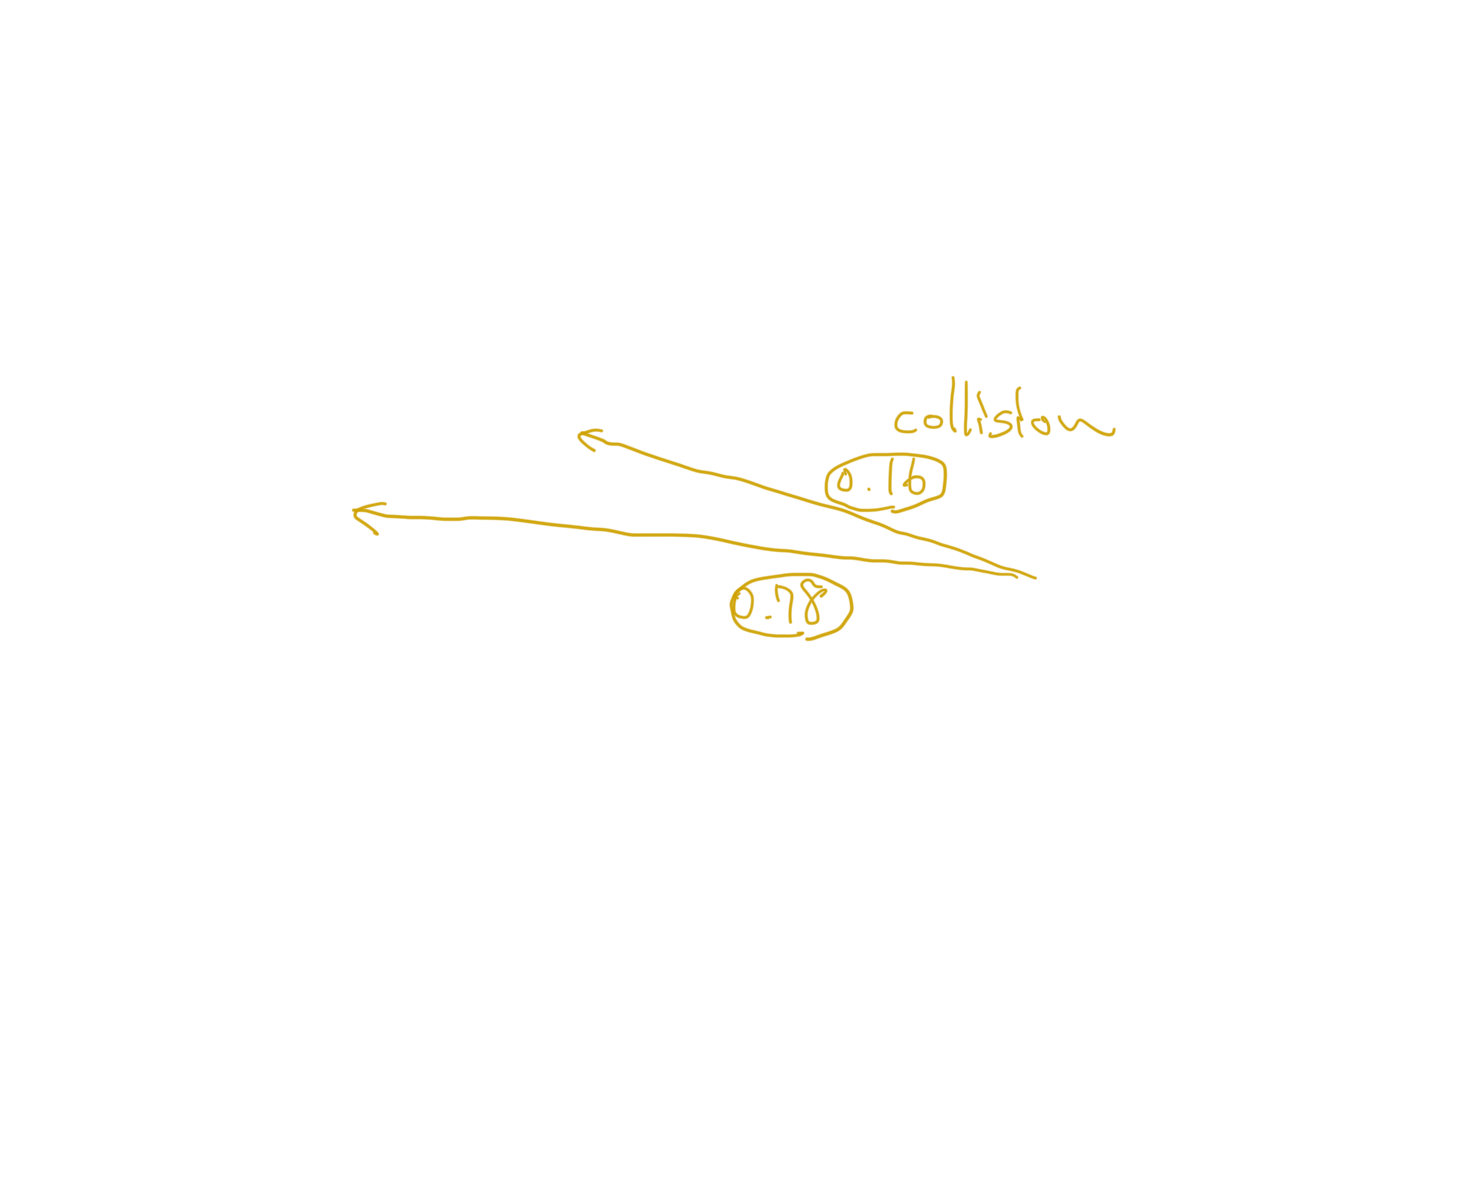 collision
0.16
0.78